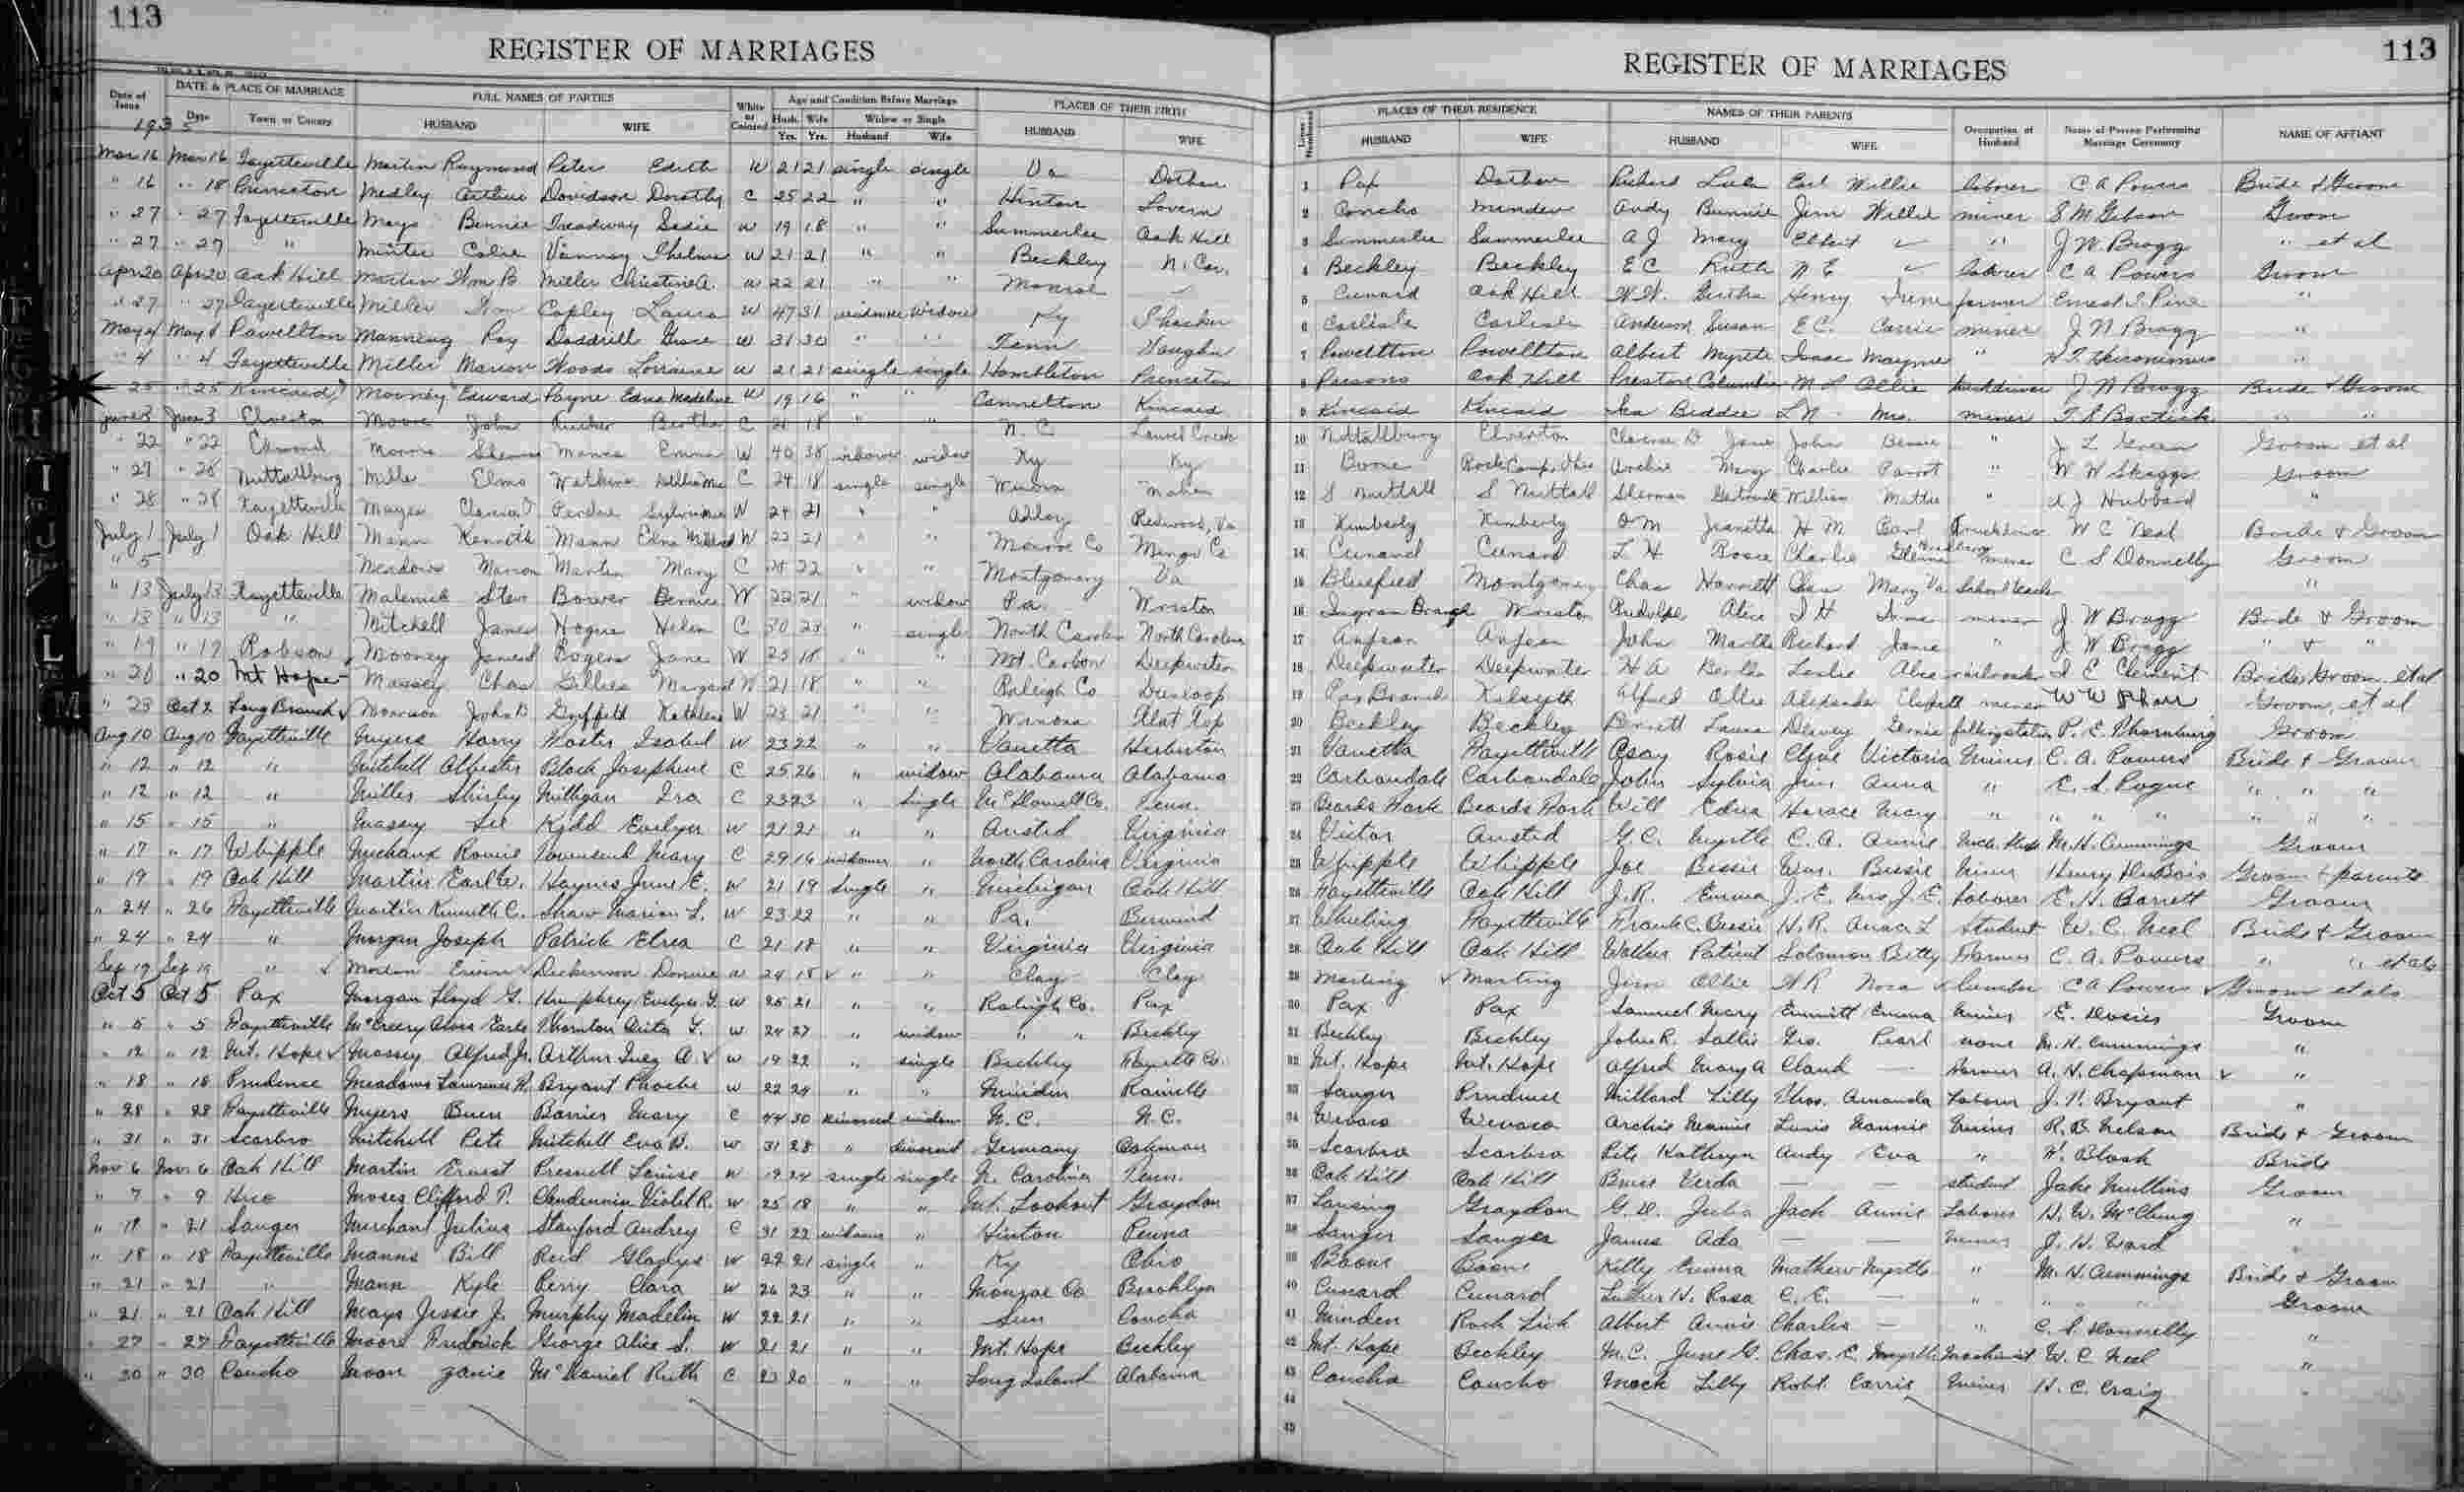 113
REGISTER OF MARRIAGES
Date of Issue DATE & PLACE OF MARRIAGE FULL NAMES OF PARTIES White or Colored Age and Condition Before Marriage PLACES OF THEIR BIRTH
1935 Date Town or County HUSBAND WIFE Husb. Yrs. Wife Yrs. Widow or Single Husband Wife HUSBAND WIFE
Mar 16 Mar 16 Fayetteville Martin Raymond Peter Edith W 21 21 single single Va Dothan
" 16 " 18 Princeton Medley Arthur Davidson Dorothy C 25 22 " " Hinton
" 27 " 27 Fayetteville Mays Bennie Treadway Sadie W 19 18 " " Summerlee Oak Hill
" 27 " 27 " Minter Vannoy Thelma W 21 21 " " Beckley N. Car.
Apr 20 Apr 20 Oak Hill Martin Wm B Miller Christine A. W 22 21 " " Monroe
" 27 " 27 Fayetteville Miller Wm Copley Laura W 47 31 widower widow Ky
May 4 May 4 Powellton Manning Roy Doddrill Grace W 31 30 " " Tenn Vaughn
" 4 " 4 Fayetteville Miller Marion Woods Lorraine W 21 21 single single Hambleton Princeton
" 25 " 25 Kincaid Mooney Edward Payne Edna Madeline W 19 16 " " Cannelton Kincaid
June 3 June 3 Elverton Moore John Rucker Bertha C 21 18 " " N. C Laurel Creek
" 22 " 22 Edmond Morris Manns Emma W 40 38 widower widow Ky Ky
" 27 " 28 Nuttallburg Mills Elmo Watkins C 24 18 single single Winona
" 28 " 28 Fayetteville Mayes Perdue W 24 21 " " Alloy Redwood, Va
July 1 July 1 Oak Hill Mann Kenneth Mann Edna W 22 21 " " Monroe Co Mingo Co
" 5 Meadows Marion Martin Mary C 28 22 " " Montgomery Va
" 13 July 13 Fayetteville Steve Bower Bernice W 22 21 " widow Pa Wriston
" 13 " 13 " Mitchell James Hogue Helen C 30 23 " single North Carolina North Carolina
" 19 " 19 Robson Mooney James Rogers Jane W 23 18 " " Mt. Carbon Deepwater
" 20 " 20 Mt Hope Massey Chas Gillies Margaret W 21 18 " " Raleigh Co Dunloop
" 23 Oct 2 Long Branch Morrison John B Griffith Kathleen W 23 21 " " Winona Flat Top
Aug 10 Aug 10 Fayetteville Myers Harry Foster Isabel W 23 22 " " Vanetta Herberton
" 12 " 12 " Mitchell Black Josephine C 25 26 " widow Alabama Alabama
" 12 " 12 " Miller Shirley Milligan Ira C 23 23 " single McDowell Co. Penn.
" 15 " 15 " Massey Lee Kydd Evelyn W 21 21 " " Ansted Virginia
" 17 " 17 Whipple Michaux Romie Townsend Mary C 29 16 widower " North Carolina Virginia
" 19 " 19 Oak Hill Martin Earl W. Haynes June E. W 21 19 Single " Michigan Oak Hill
" 24 " 26 Fayetteville Martin Kenneth C. Shaw Marion L. W 23 22 " " Pa. Berwind
" 24 " 24 " Morgan Joseph Patrick Elrea C 21 18 " " Virginia Virginia
Sep 19 Sep 19 " Morton Dickenson W 24 18 " " Clay Clay
Oct 5 Oct 5 Pax Morgan Floyd G. Humphrey Evelyn G. W 25 21 " " Raleigh Co. Pax
" 5 " 5 Fayetteville McCreery Alvis Earle Thornton Anita L. W 24 27 " widow " " Beckley
" 12 " 12 Mt. Hope Massey Alfred Jr. Arthur Inez A. W 19 22 " single Beckley Fayette Co.
" 18 " 18 Prudence Meadows Lawrence R. Bryant Phoebe W 22 24 " " Minden Rainelle
" 28 " 28 Fayetteville Myers Buen Barrier Mary C 44 30 divorced widow N. C. N. C.
" 31 " 31 Scarbro Mitchell Pete Mitchell Eva W. W 31 28 " divorced Germany Coleman
Nov 6 Nov. 6 Oak Hill Martin Ernest Presnell Louise W 19 24 single single N. Carolina Tenn.
" 7 " 9 Hico Moses Clifford T. Clendennin Violet R. W 25 18 " " Mt. Lookout Graydon
" 18 " 21 Sanger Merchant Julius Stanford Audrey C 31 22 widower " Hinton Penna
" 18 " 18 Fayetteville Manns Bill Reid Gladys W 22 21 single " Ky Ohio
" 21 " 21 " Mann Kyle Perry Clara W 26 23 " " Monroe Co Brooklyn
" 21 " 21 Oak Hill Mays Jessie J. Murphy Madelin W 22 21 " " Sun Concho
" 27 " 27 Fayetteville Moore Frederick George Alice S. W 21 21 " " Mt. Hope Beckley
" 30 " 30 Concho Moon Janie McDaniel Ruth C 23 20 " " Long Island Alabama
113
REGISTER OF MARRIAGES
PLACES OF THEIR RESIDENCE NAMES OF THEIR PARENTS Occupation of Husband Name of Person Performing Marriage Ceremony NAME OF AFFIANT
HUSBAND WIFE HUSBAND WIFE
1 Pax Dothan Richard Lula Earl Willie laborer C A Powers Bride & Groom
2 Concho Minden Andy Bunnie Jim Willie miner S M Gibson Groom
3 Summerlee Summerlee A J Mary Elbert " J W Bragg " et al
4 Beckley Beckley E C Ruth W E laborer C A Powers Groom
5 Cunard Oak Hill W. W. Bertha Henry Irene farmer Ernest "
6 Carlisle Carlisle Anderson Susan E C. Carrie miner J W Bragg "
7 Powellton Powellton Albert Myrtle Isaac Mayme " "
8 Parsons Oak Hill Preston Columbia M L Allie truckdriver J W Bragg Bride & Groom
9 Kincaid Kincaid Ira Biddie L N Mrs. miner T. S Bostick " "
10 Nuttallburg Elverton Clarence D Jane John Bessie " J L Green Groom et al
11 Boone Rock Camp, Ohio Archie Mary Charlie " W W Skaggs Groom
12 S Nuttall S Nuttall Sherman Gertrude William Mattie " A J Hubbard "
13 Kimberly Kimberly O M Jeanetta H M Pearl Truckdriver W C Neal Bride & Groom
14 Cunard Cunard L H Rosie Charlie miner C S Donnelly Groom
15 Bluefield Montgomery Chas Harriett Chas Mary Va School teacher "
16 Ingram Branch Wriston Rudolph Alice I H miner J. W Bragg Bride & Groom
17 Anjean Anjean John Martha Richard Janie " J W Bragg " & "
18 Deepwater Deepwater H A Bertha Leslie railroader I C Clement Bride Groom et al
19 Pax Branch Kilsyth Alfred Ollie Alexander Elizabeth miner W W Groom, et al
20 Beckley Beckley Bennett Laura Dewey filling station P. E. Thornburg Groom
21 Vanetta Fayetteville Asay Rosie Clyde Victoria Miner C. A. Powers Bride & Groom
22 Carbondale Carbondale John Sylvia Jim Anna " C. S. Pogue " " "
23 Beards Fork Beards Fork Will Edna Horace Mary " " " " " " "
24 Victor Ansted G. C. Myrtle C. A. Annie M. H. Cummings Groom
25 Whipple Whipple Joe Bessie Wm. Bessie Miner Henry DuBois Groom & parents
26 Fayetteville Oak Hill J. R. Emma J. E. Mrs. J. E. Laborer E. H. Barrett Groom
27 Wheeling Fayetteville Frank C. Bessie H. R. Anna L Student W. C. Neal Bride & Groom
28 Oak Hill Oak Hill Walker Patient Solomon Betty Farmer C. A. Powers " " et als
29 Marting Marting Jim Ollie H R Nora lumber C A Powers Groom et als
30 Pax Pax Samuel Mary Emmitt Emma Miner E. Dosier Groom
31 Beckley Beckley John R. Sallie Geo. Pearl none M. H. Cummings "
32 Mt. Hope Mt. Hope Alfred Mary A Claud — Farmer A. H. Chapman "
33 Sanger Prudence Millard Lilly Thos. Amanda Laborer J. W. Bryant "
34 Wevaco Wevaco Archie Minnie Louis Nannie Miner R. B. Nelson Bride & Groom
35 Scarbro Scarbro Pete Kathryn Andy Eva " H. Black Bride
36 Oak Hill Oak Hill Bruce Verda — — student Jake Mullins Groom
37 Lansing Graydon G. D. Julia Jack Annie Laborer H. W. McClung "
38 Sanger Sanger James Ada — — Miner J. H. Ward "
39 Boone Boone Kelly Emma Mathew Myrtle " M. H. Cummings Bride & Groom
40 Cunard Cunard Luther H. Rosa C. C. — " " " " Groom
41 Minden Rock Lick Albert Annie Charles — " C. S. Donnelly "
42 Mt. Hope Beckley M. C. June G. Chas. E. Myrtle Machinist W. C Neal "
43 Concho Concho Mack Lilly Robt. Carrie Miner H. C. Craig "
44
45
F
I
J
L
M